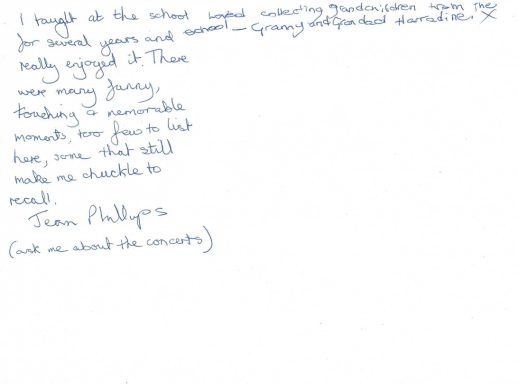 I taught at the school
for several years and
really enjoyed it. There
were many funny,
touching & memorable
moments, too few to list
here, some that still
make me chuckle to
recall.
Jean Phillips
(ask me about the concerts)
Loved collecting grandchildren from the
school – Granny and Grandad Harradine. X